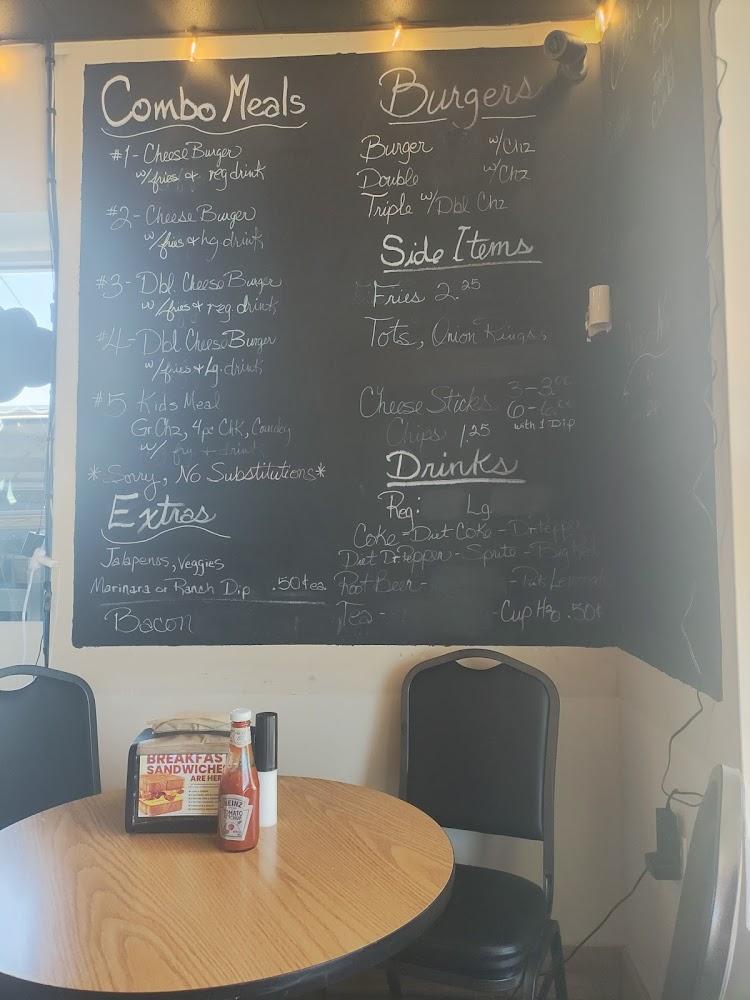 Combo Meals
#1 - Cheese Burger
w/fries & reg drink
#2 - Cheese Burger
w/fries & lg drink
#3 - Dbl. Cheese Burger
w/fries & reg. drink
#4 - Dbl Cheese Burger
w/fries & Lg. drink
#5 Kids Meal
Gr. Chz, 4pc Chk,
w/ fry & drink
*Sorry, No Substitutions*
Extras
Jalapenos, Veggies
Marinara or Ranch Dip .50¢ea
Bacon
Burgers
Burger w/Chz
Double w/Chz
Triple w/Dbl Chz
Side Items
Fries 2.25
Tots, Onion Rings
Cheese Sticks 3-3.00
6-6.00
with 1 Dip
Chips 1.25
Drinks
Reg: Lg.
Coke - Diet Coke - Dr. Pepper
Diet Dr Pepper - Sprite - Big Red
Root Beer - - Pink Lemonade
Tea - - Cup H2O .50¢
BREAKFAST
SANDWICHES
ARE HERE
HEINZ
TOMATO
KETCHUP